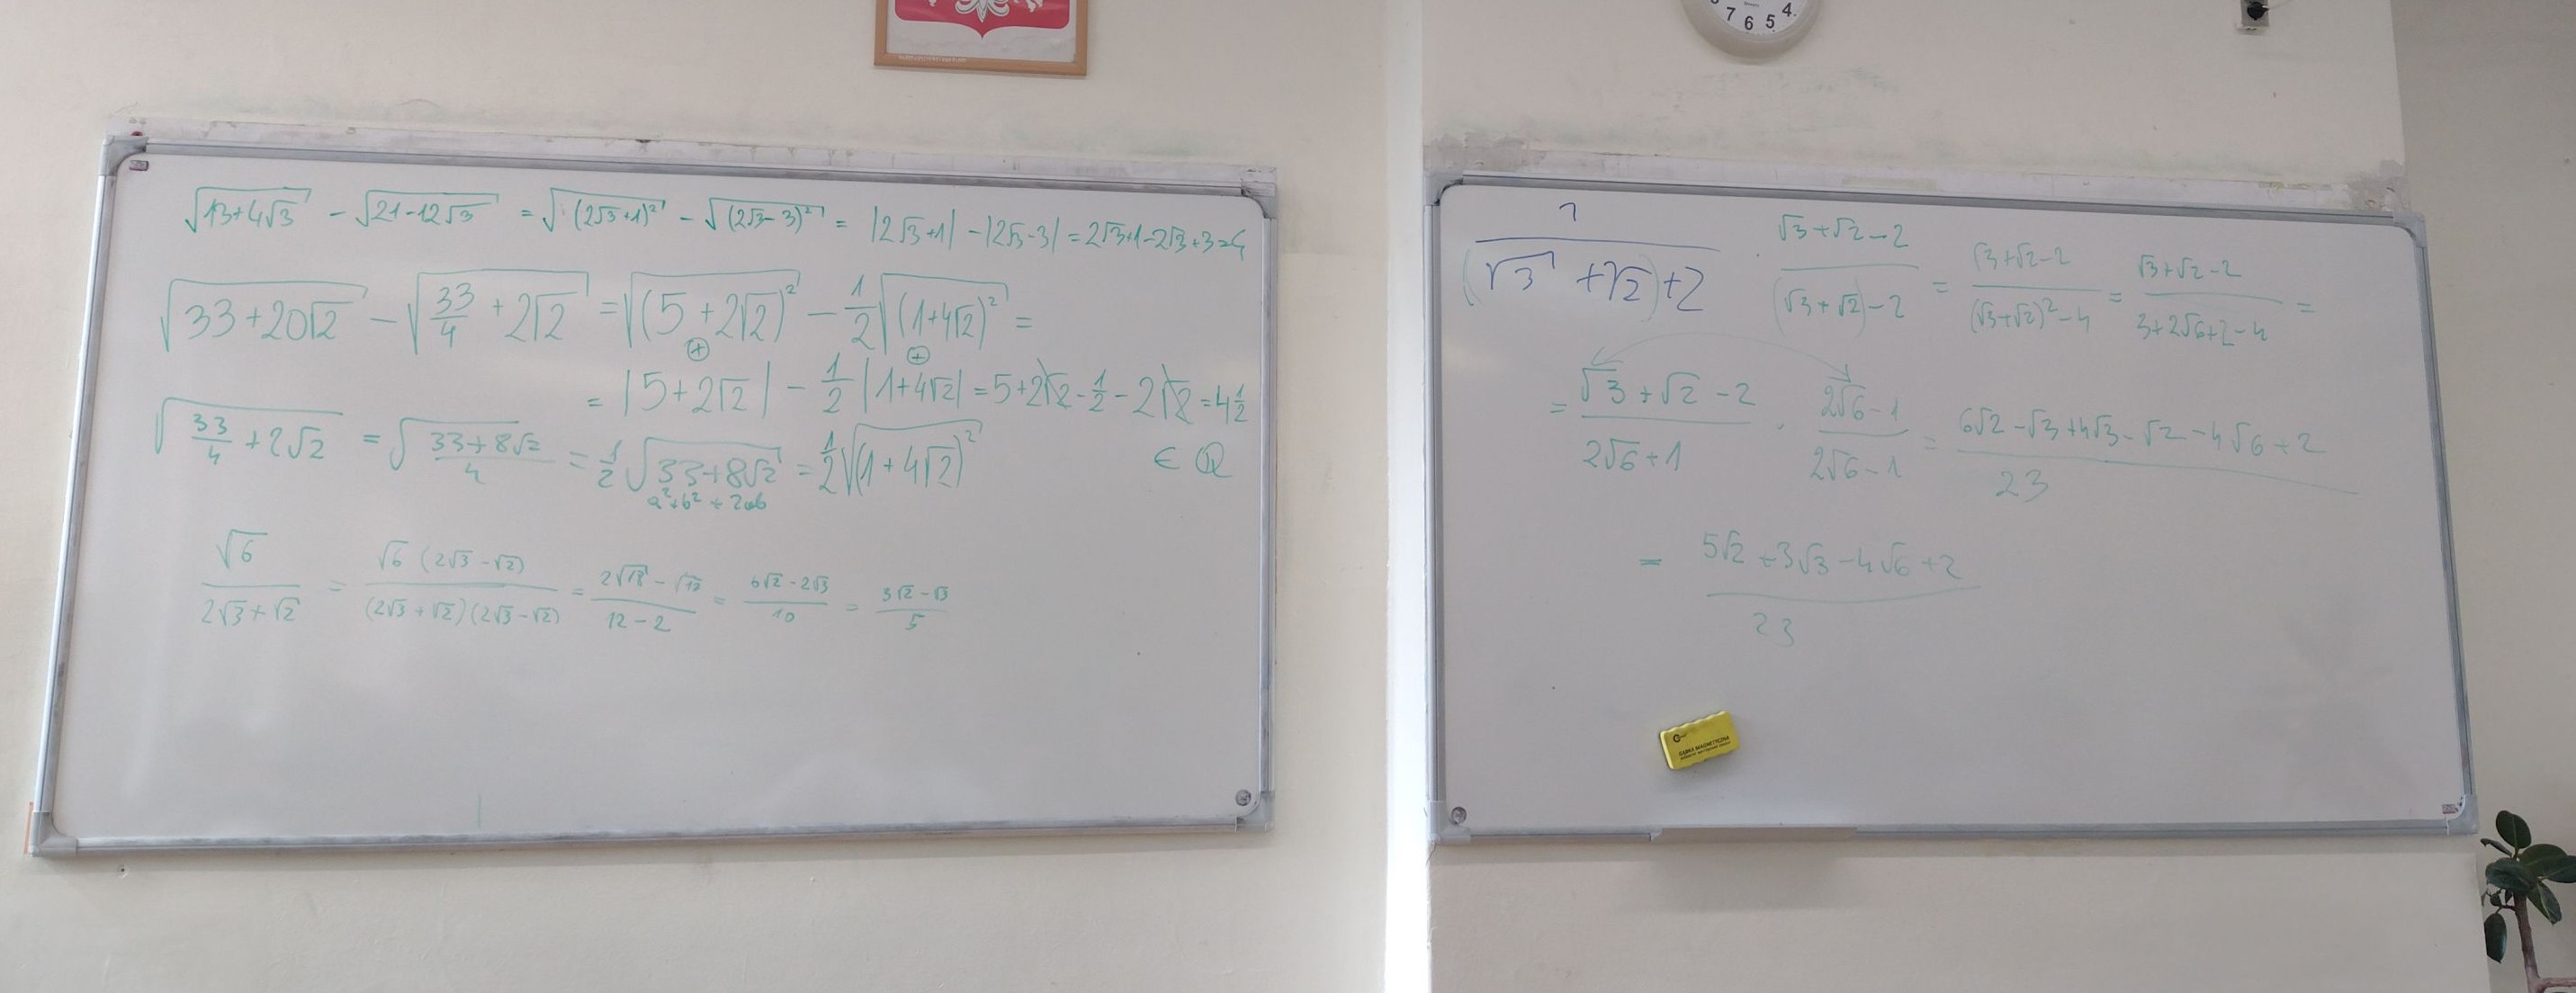 √(13+4√3) - √(21-12√3) = √((2√3+1)²) - √((2√3-3)²) = |2√3+1| - |2√3-3| = 2√3+1-2√3+3=4
√(33+20√2) - √(33/4 + 2√2) = √((5+2√2)²) - 1/2 √((1+4√2)²) =
⊕ ⊕
= |5+2√2| - 1/2 |1+4√2| = 5+2√2 - 1/2 - 2√2 = 4 1/2
√(33/4 + 2√2) = √((33+8√2)/4) = 1/2 √(33+8√2) = 1/2 √((1+4√2)²) ∈ Q
a²+b² + 2ab
√6/(2√3+√2) = √6 (2√3-√2)/((2√3+√2)(2√3-√2)) = (2√18 - √12)/(12-2) = (6√2-2√3)/10 = (3√2-√3)/5
1/((√3+√2)+2) · (√3+√2-2)/((√3+√2)-2) = (√3+√2-2)/((√3+√2)²-4) = (√3+√2-2)/(3+2√6+2-4) =
= (√3+√2-2)/(2√6+1) · (2√6-1)/(2√6-1) = (6√2-√3+4√3-√2-4√6+2)/23
= (5√2+3√3-4√6+2)/23
GĄBKA MAGNETYCZNA
7 6 5 4